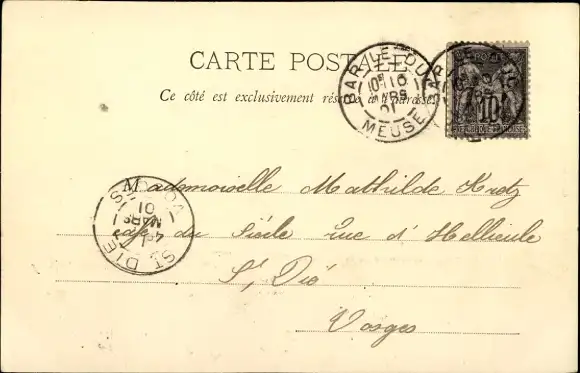 CARTE POSTALE
Ce côté est exclusivement réservé à l'adresse
BAR-LE-DUC
10E 16
MARS
01
MEUSE
10
Mademoiselle Mathilde
café du Siècle Rue d'Hellieule
St Dié
Vosges
ST DIE
MARS
01
VOSGES